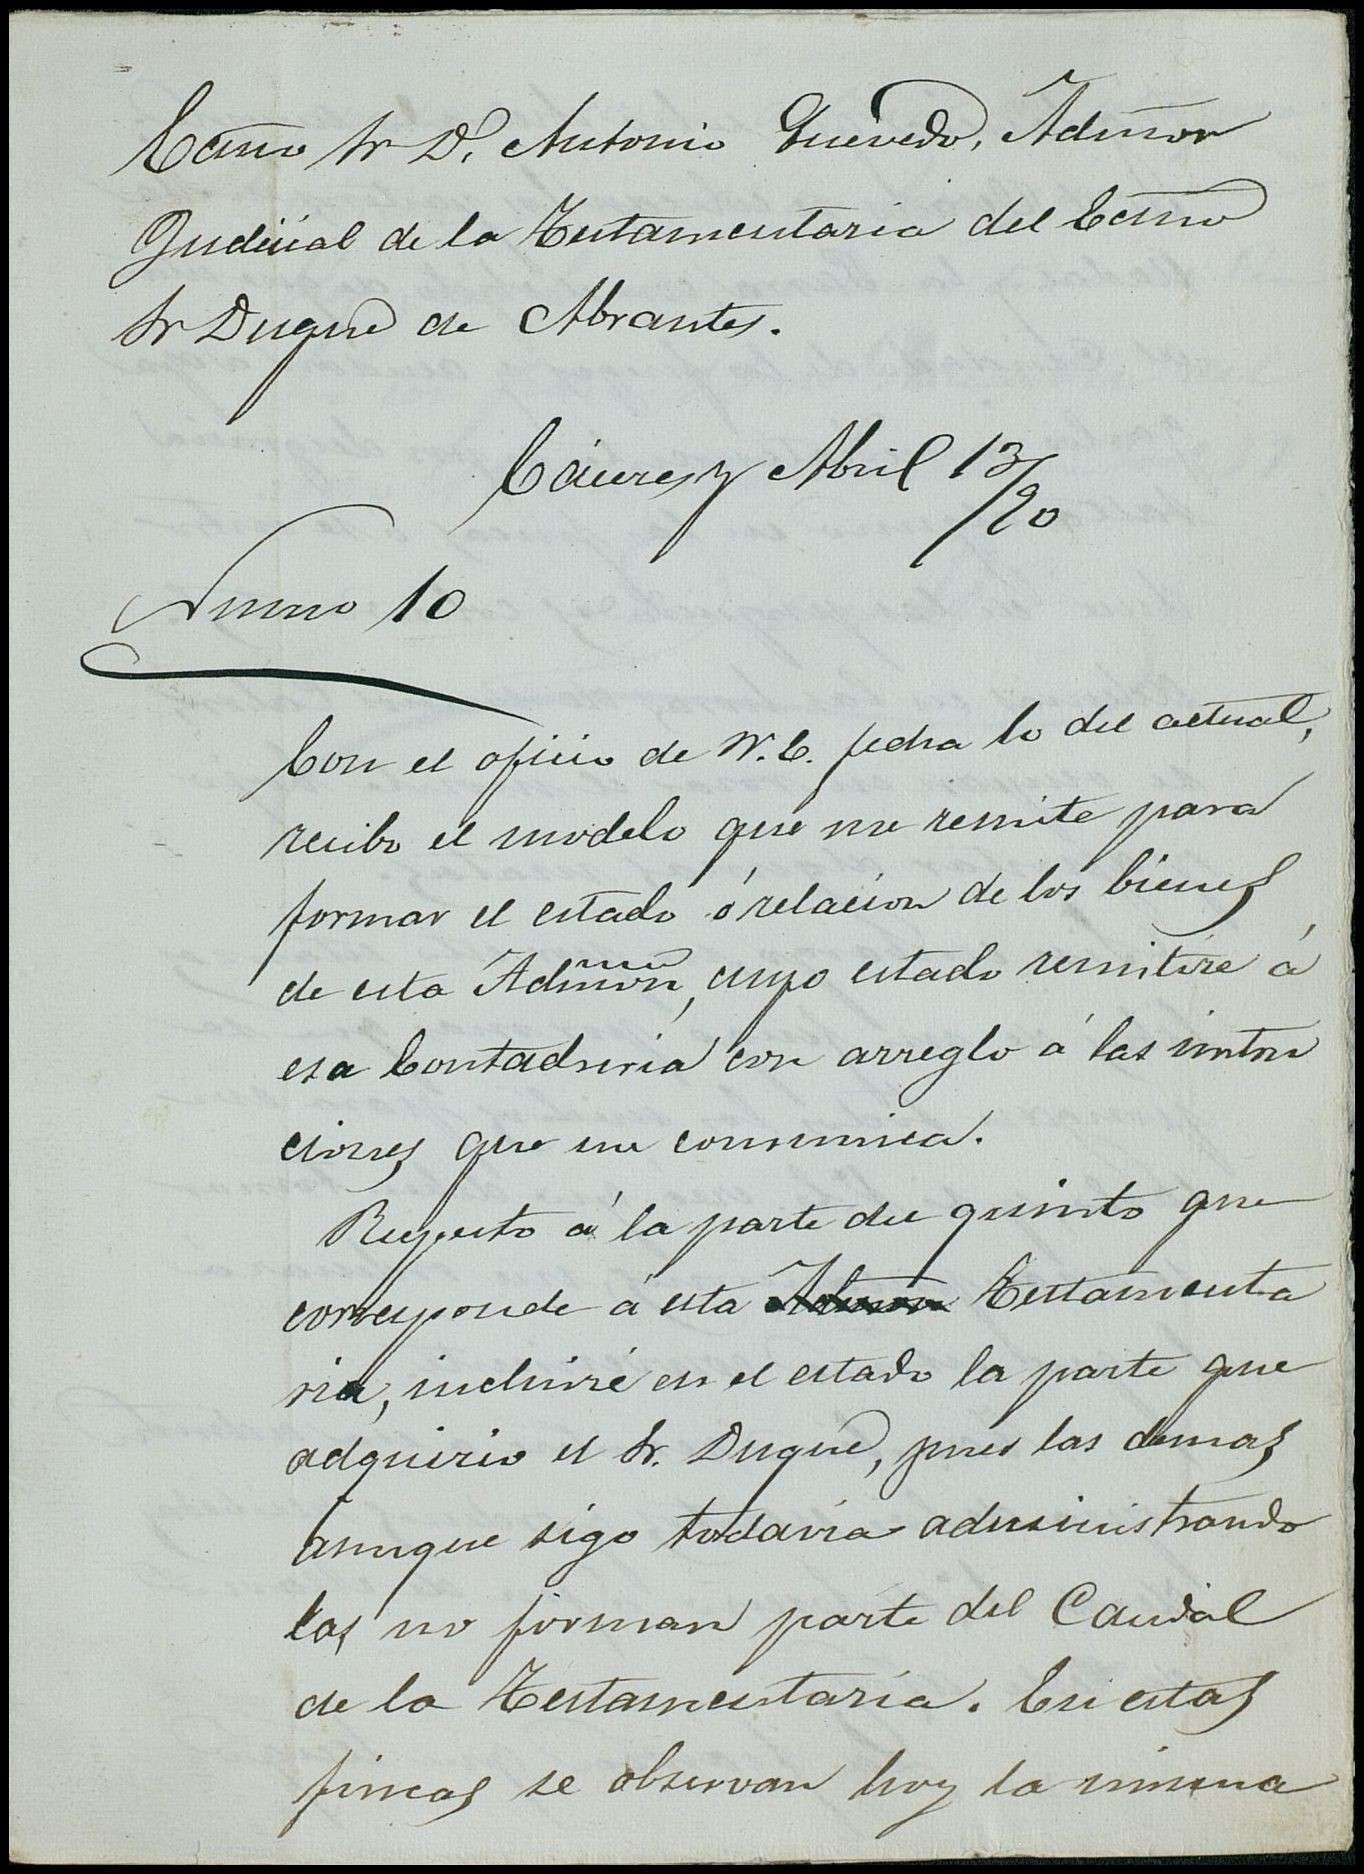 Ecmo Sr D. Antonio Quevedo, Admor
Judicial de la Testamentaria del Ecmo
Sr Duque de Abrantes.
Cáceres y Abril 13/90
Numo 10
Con el oficio de V. E. fecha 10 del actual,
recibo el modelo que me remite para
formar el estado ó relacion de los bienes
de esta Admon, cuyo estado remitiré á
esa Contaduria con arreglo á las instruc
ciones que me comunica.
Respecto á la parte del quinto que
corresponde á esta Admon Testamenta
ria, incluiré en el estado la parte que
adquirio el Sr. Duque, pues las demas
aunque sigo todavia administrando
las no forman parte del Caudal
de la Testamentaria. En estas
fincas se observan hoy la misma